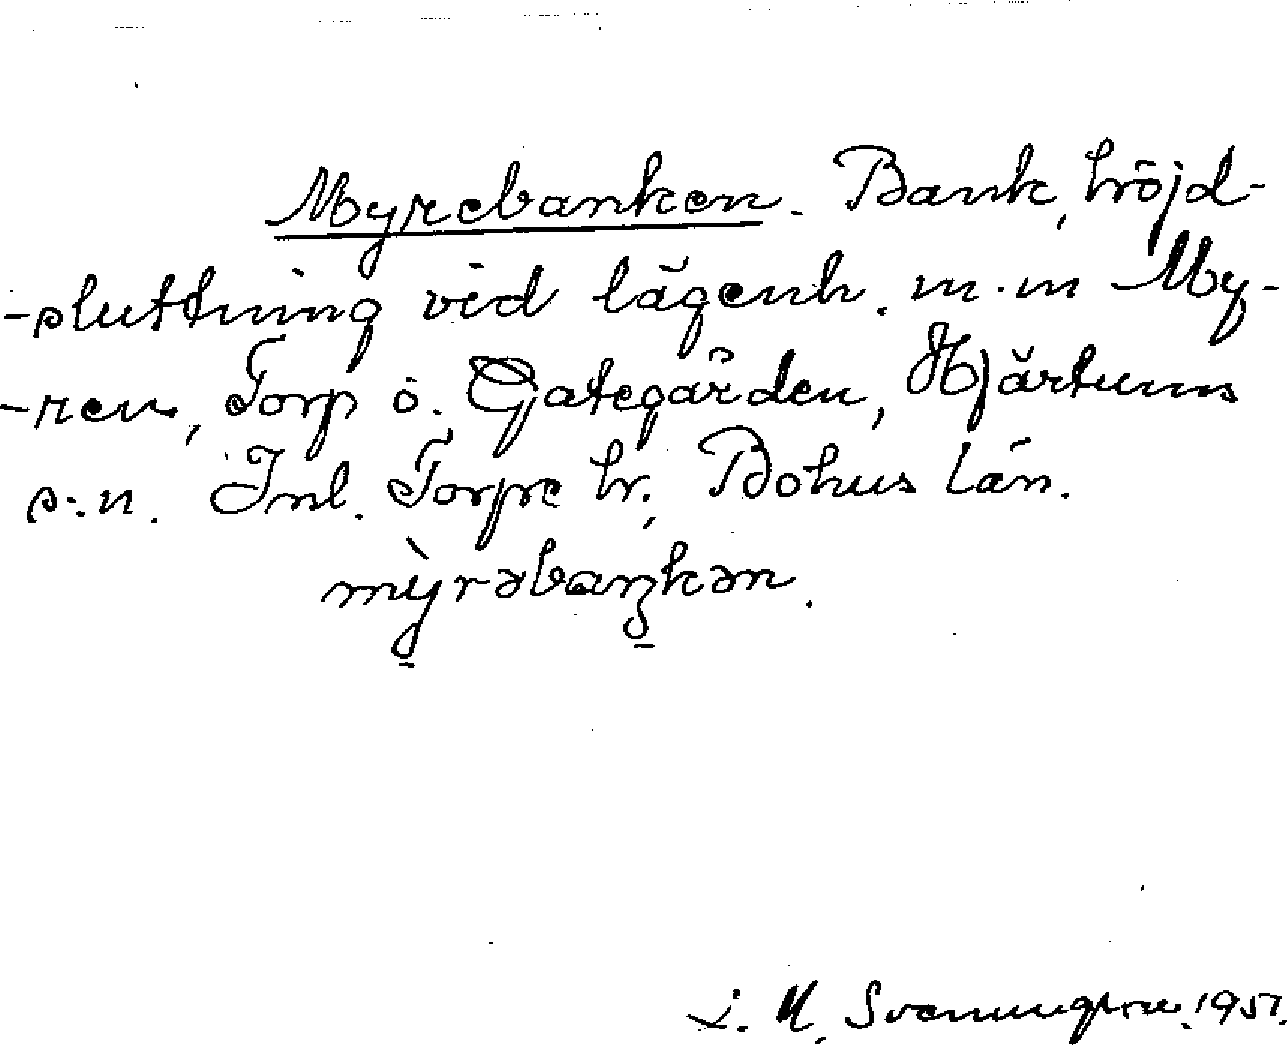 Myrebanken. Bank, höjd-
-sluttning vid lägenh. m.m My-
-ren, Torp o. Gategården, Hjärtums
s:n. Inl. Torpe hr, Bohus län.
mỳrəbaŋkən.
J. M. Svenungson. 1951.